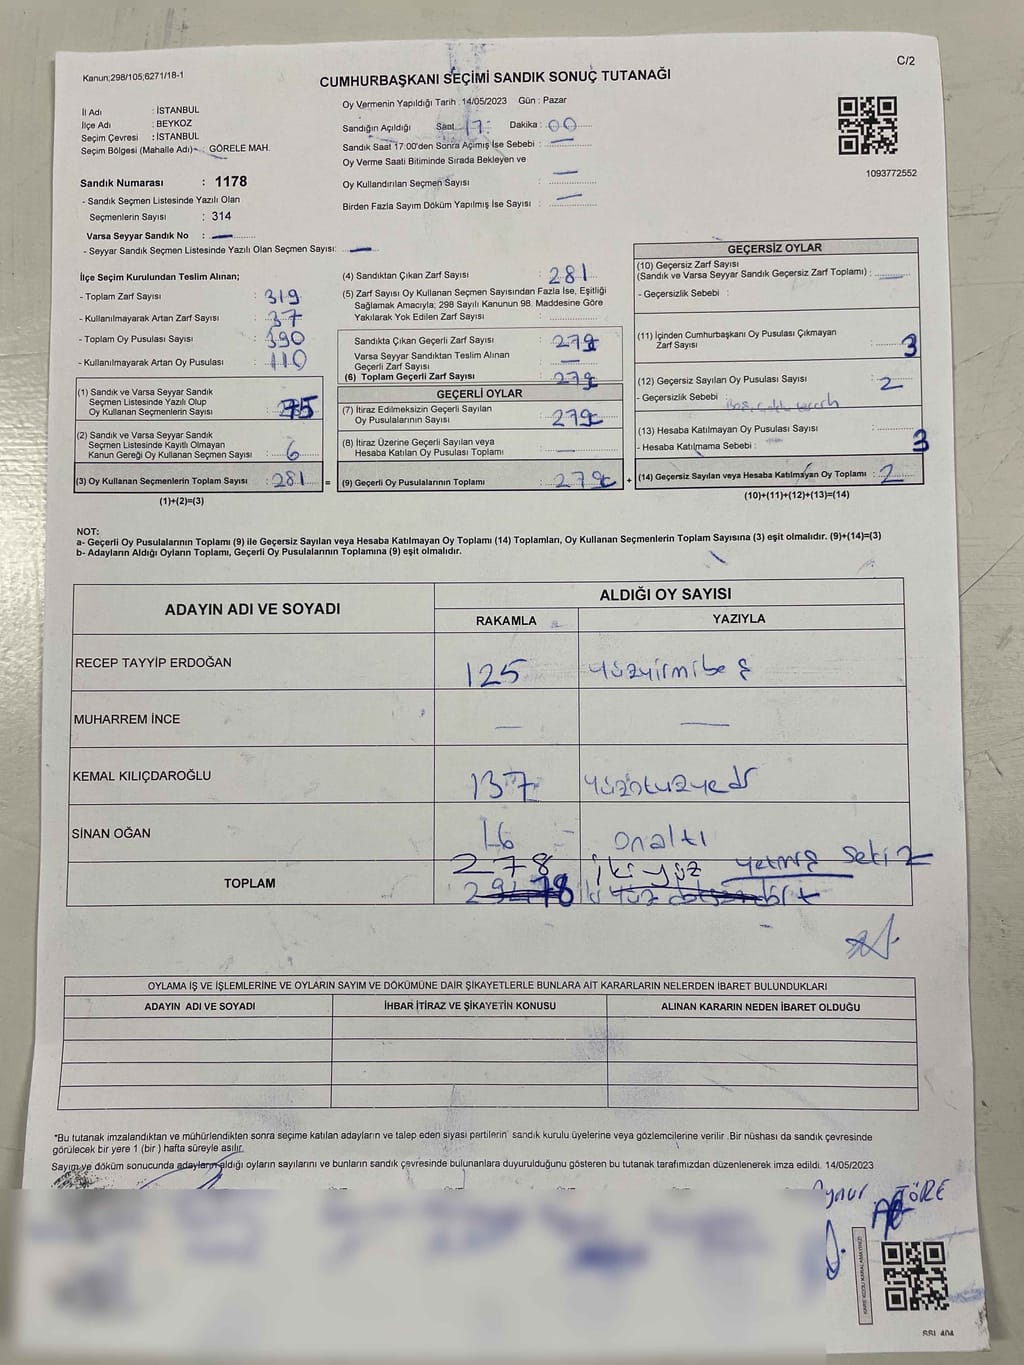 Kanun;298/105;6271/18-1
C/2
CUMHURBAŞKANI SEÇİMİ SANDIK SONUÇ TUTANAĞI
İl Adı : İSTANBUL
İlçe Adı : BEYKOZ
Seçim Çevresi : İSTANBUL
Seçim Bölgesi (Mahalle Adı) : GÖRELE MAH.
Sandık Numarası : 1178
- Sandık Seçmen Listesinde Yazılı Olan
Seçmenlerin Sayısı : 314
Varsa Seyyar Sandık No : —
- Seyyar Sandık Seçmen Listesinde Yazılı Olan Seçmen Sayısı: —
Oy Vermenin Yapıldığı Tarih : 14/05/2023 Gün : Pazar
Sandığın Açıldığı Saat 17: Dakika : 00
Sandık Saat 17:00'den Sonra Açılmış İse Sebebi : —
Oy Verme Saati Bitiminde Sırada Bekleyen ve
Oy Kullandırılan Seçmen Sayısı : —
Birden Fazla Sayım Döküm Yapılmış İse Sayısı : —
1093772552
İlçe Seçim Kurulundan Teslim Alınan;
- Toplam Zarf Sayısı : 319
- Kullanılmayarak Artan Zarf Sayısı : 37
- Toplam Oy Pusulası Sayısı : 390
- Kullanılmayarak Artan Oy Pusulası : 110
(1) Sandık ve Varsa Seyyar Sandık
Seçmen Listesinde Yazılı Olup
Oy Kullanan Seçmenlerin Sayısı : 75
(2) Sandık ve Varsa Seyyar Sandık
Seçmen Listesinde Kayıtlı Olmayan
Kanun Gereği Oy Kullanan Seçmen Sayısı : 6
(3) Oy Kullanan Seçmenlerin Toplam Sayısı : 281 =
(1)+(2)=(3)
(4) Sandıktan Çıkan Zarf Sayısı : 281
(5) Zarf Sayısı Oy Kullanan Seçmen Sayısından Fazla İse, Eşitliği
Sağlamak Amacıyla; 298 Sayılı Kanunun 98. Maddesine Göre
Yakılarak Yok Edilen Zarf Sayısı :
Sandıkta Çıkan Geçerli Zarf Sayısı :
Varsa Seyyar Sandıktan Teslim Alınan
Geçerli Zarf Sayısı : —
(6) Toplam Geçerli Zarf Sayısı :
GEÇERLİ OYLAR
(7) İtiraz Edilmeksizin Geçerli Sayılan
Oy Pusulalarının Sayısı :
(8) İtiraz Üzerine Geçerli Sayılan veya
Hesaba Katılan Oy Pusulası Toplamı : —
(9) Geçerli Oy Pusulalarının Toplamı : +
GEÇERSİZ OYLAR
(10) Geçersiz Zarf Sayısı
(Sandık ve Varsa Seyyar Sandık Geçersiz Zarf Toplamı) : —
- Geçersizlik Sebebi :
(11) İçinden Cumhurbaşkanı Oy Pusulası Çıkmayan
Zarf Sayısı : 3
(12) Geçersiz Sayılan Oy Pusulası Sayısı : 2
- Geçersizlik Sebebi
(13) Hesaba Katılmayan Oy Pusulası Sayısı :
- Hesaba Katılmama Sebebi : — 3
(14) Geçersiz Sayılan veya Hesaba Katılmayan Oy Toplamı : 2
(10)+(11)+(12)+(13)=(14)
NOT:
a- Geçerli Oy Pusulalarının Toplamı (9) ile Geçersiz Sayılan veya Hesaba Katılmayan Oy Toplamı (14) Toplamları, Oy Kullanan Seçmenlerin Toplam Sayısına (3) eşit olmalıdır. (9)+(14)=(3)
b- Adayların Aldığı Oyların Toplamı, Geçerli Oy Pusulalarının Toplamına (9) eşit olmalıdır.
ADAYIN ADI VE SOYADI
ALDIĞI OY SAYISI
RAKAMLA YAZIYLA
RECEP TAYYİP ERDOĞAN 125 yüzyirmibeş
MUHARREM İNCE — —
KEMAL KILIÇDAROĞLU 137 yüzotuzyedi
SİNAN OĞAN 16 onaltı
278 iki yüz yetmiş sekiz
TOPLAM 78 iki yüz
OYLAMA İŞ VE İŞLEMLERİNE VE OYLARIN SAYIM VE DÖKÜMÜNE DAİR ŞİKAYETLERLE BUNLARA AİT KARARLARIN NELERDEN İBARET BULUNDUKLARI
ADAYIN ADI VE SOYADI İHBAR İTİRAZ VE ŞİKAYETİN KONUSU ALINAN KARARIN NEDEN İBARET OLDUĞU
*Bu tutanak imzalandıktan ve mühürlendikten sonra seçime katılan adayların ve talep eden siyasi partilerin sandık kurulu üyelerine veya gözlemcilerine verilir. Bir nüshası da sandık çevresinde
görülecek bir yere 1 (bir) hafta süreyle asılır.
Sayım ve döküm sonucunda adayların aldığı oyların sayılarını ve bunların sandık çevresinde bulunanlara duyurulduğunu gösteren bu tutanak tarafımızdan düzenlenerek imza edildi. 14/05/2023
Aynur TÖRE
KARE KODU KARALAMAYINIZ!